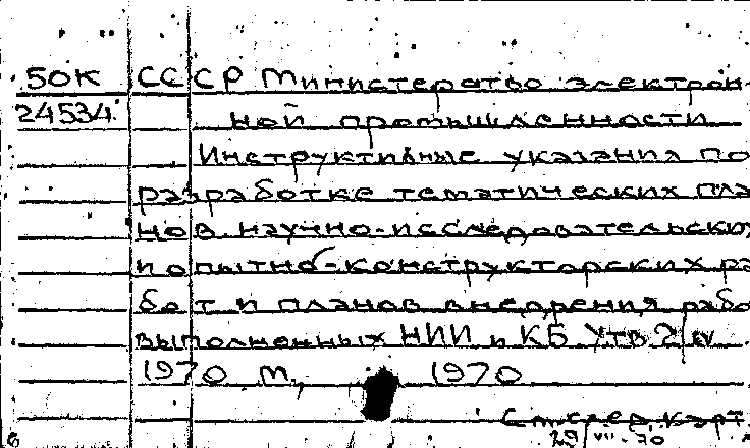 50К СССР Министерство электрон-
24534 ной промышленности
Инструктивные указания по
разработке тематических пла
нов научно-исследовательских
и опытно-конструкторских ра
бот и планов внедрения рабо
выполненных НИИ и КБ Утв 2/IV
1970 М., 1970
См след карт
29/VII-70